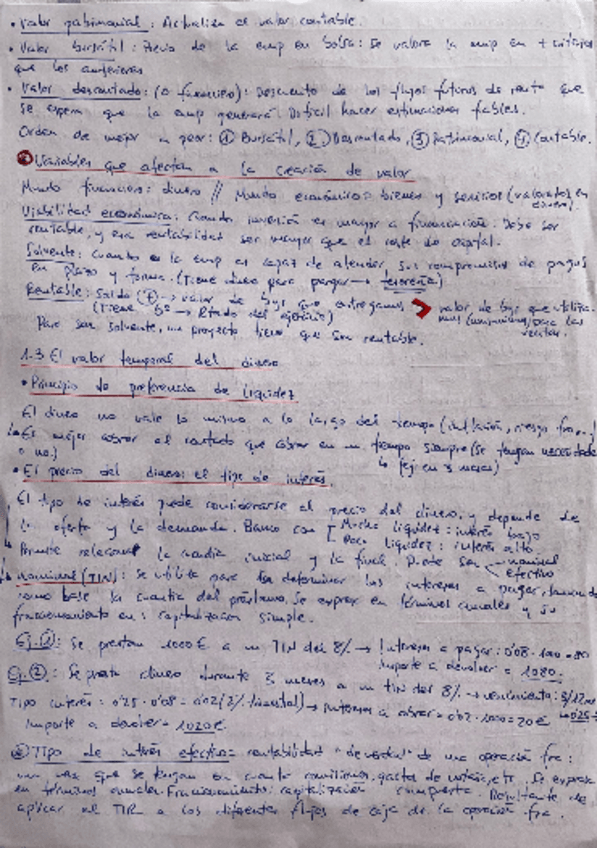 • Valor patrimonial: Actualiza el valor contable.
• Valor bursátil: Precio de la emp en bolsa: Se valora la emp en + criterios
que los anteriores
• Valor descontado: (o financiero): Descuento de los flujos futuros de renta que
se espera que la emp generará. Difícil hacer estimaciones fiables.
Orden de mejor a peor: ① Bursátil, ② Descontado, ③ Patrimonial, ④ Contable.
Variables que afectan a la creación de valor
Mundo financiero: dinero // Mundo económico = bienes y servicios (valorados en dinero).
Viabilidad económica: Cuando inversión es mayor a financiación. Debe ser
rentable, y esa rentabilidad ser mayor que el coste de capital.
Solvente: cuando en la emp es capaz de atender sus compromisos de pagos
en plazo y forma. (Tiene dinero para pagar → tesorería)
Rentable: Saldo (+) → valor de bys que entregamos > valor de bys que utiliza-
(Tiene bº → Rtado del ejercicio) mos (consumimos) para las ventas.
Para ser solvente, un proyecto tiene que ser rentable.
1.3 El valor temporal del dinero
• Principio de preferencia de liquidez
El dinero no vale lo mismo a lo largo del tiempo (inflación, riesgo fro...)
Es mejor cobrar al contado que cobrar en un tiempo siempre (se tengan necesidades
o no.) (ej: en 3 meses)
• El precio del dinero: el tipo de interés
El tipo de interés puede considerarse el precio del dinero, y depende de
la oferta y la demanda. Banco con [ Mucha liquidez: interés bajo
Poca liquidez: interés alto
Permite relacionar la cuantía inicial y la final. Puede ser nominal
efectivo
nominal (TIN): Se utiliza para determinar los intereses a pagar, tomando
como base la cuantía del préstamo. Se expresa en términos anuales y su
fraccionamiento en: capitalización simple.
Ej. ①: Se prestan 1000€ a un TIN del 8% → Intereses a pagar: 0'08·1000 = 80
Importe a devolver = 1080
Ej. ②: Se presta dinero durante 3 meses a un TIN del 8% → vencimiento: 3/12
Tipo interés: 0'25·0'08 = 0'02 (2% trimestral) → intereses a cobrar = 0'02·1000 = 20€ = 0'25
Importe a devolver = 1020€
Tipo de interés efectivo = rentabilidad "de verdad" de una operación fra:
una vez que se tengan en cuenta comisiones, gastos de notaría, etc. Se expresa
en términos anuales. Fraccionamiento: capitalización compuesta. Resultante de
aplicar el TIR a los diferentes flujos de caja de la operación fra.